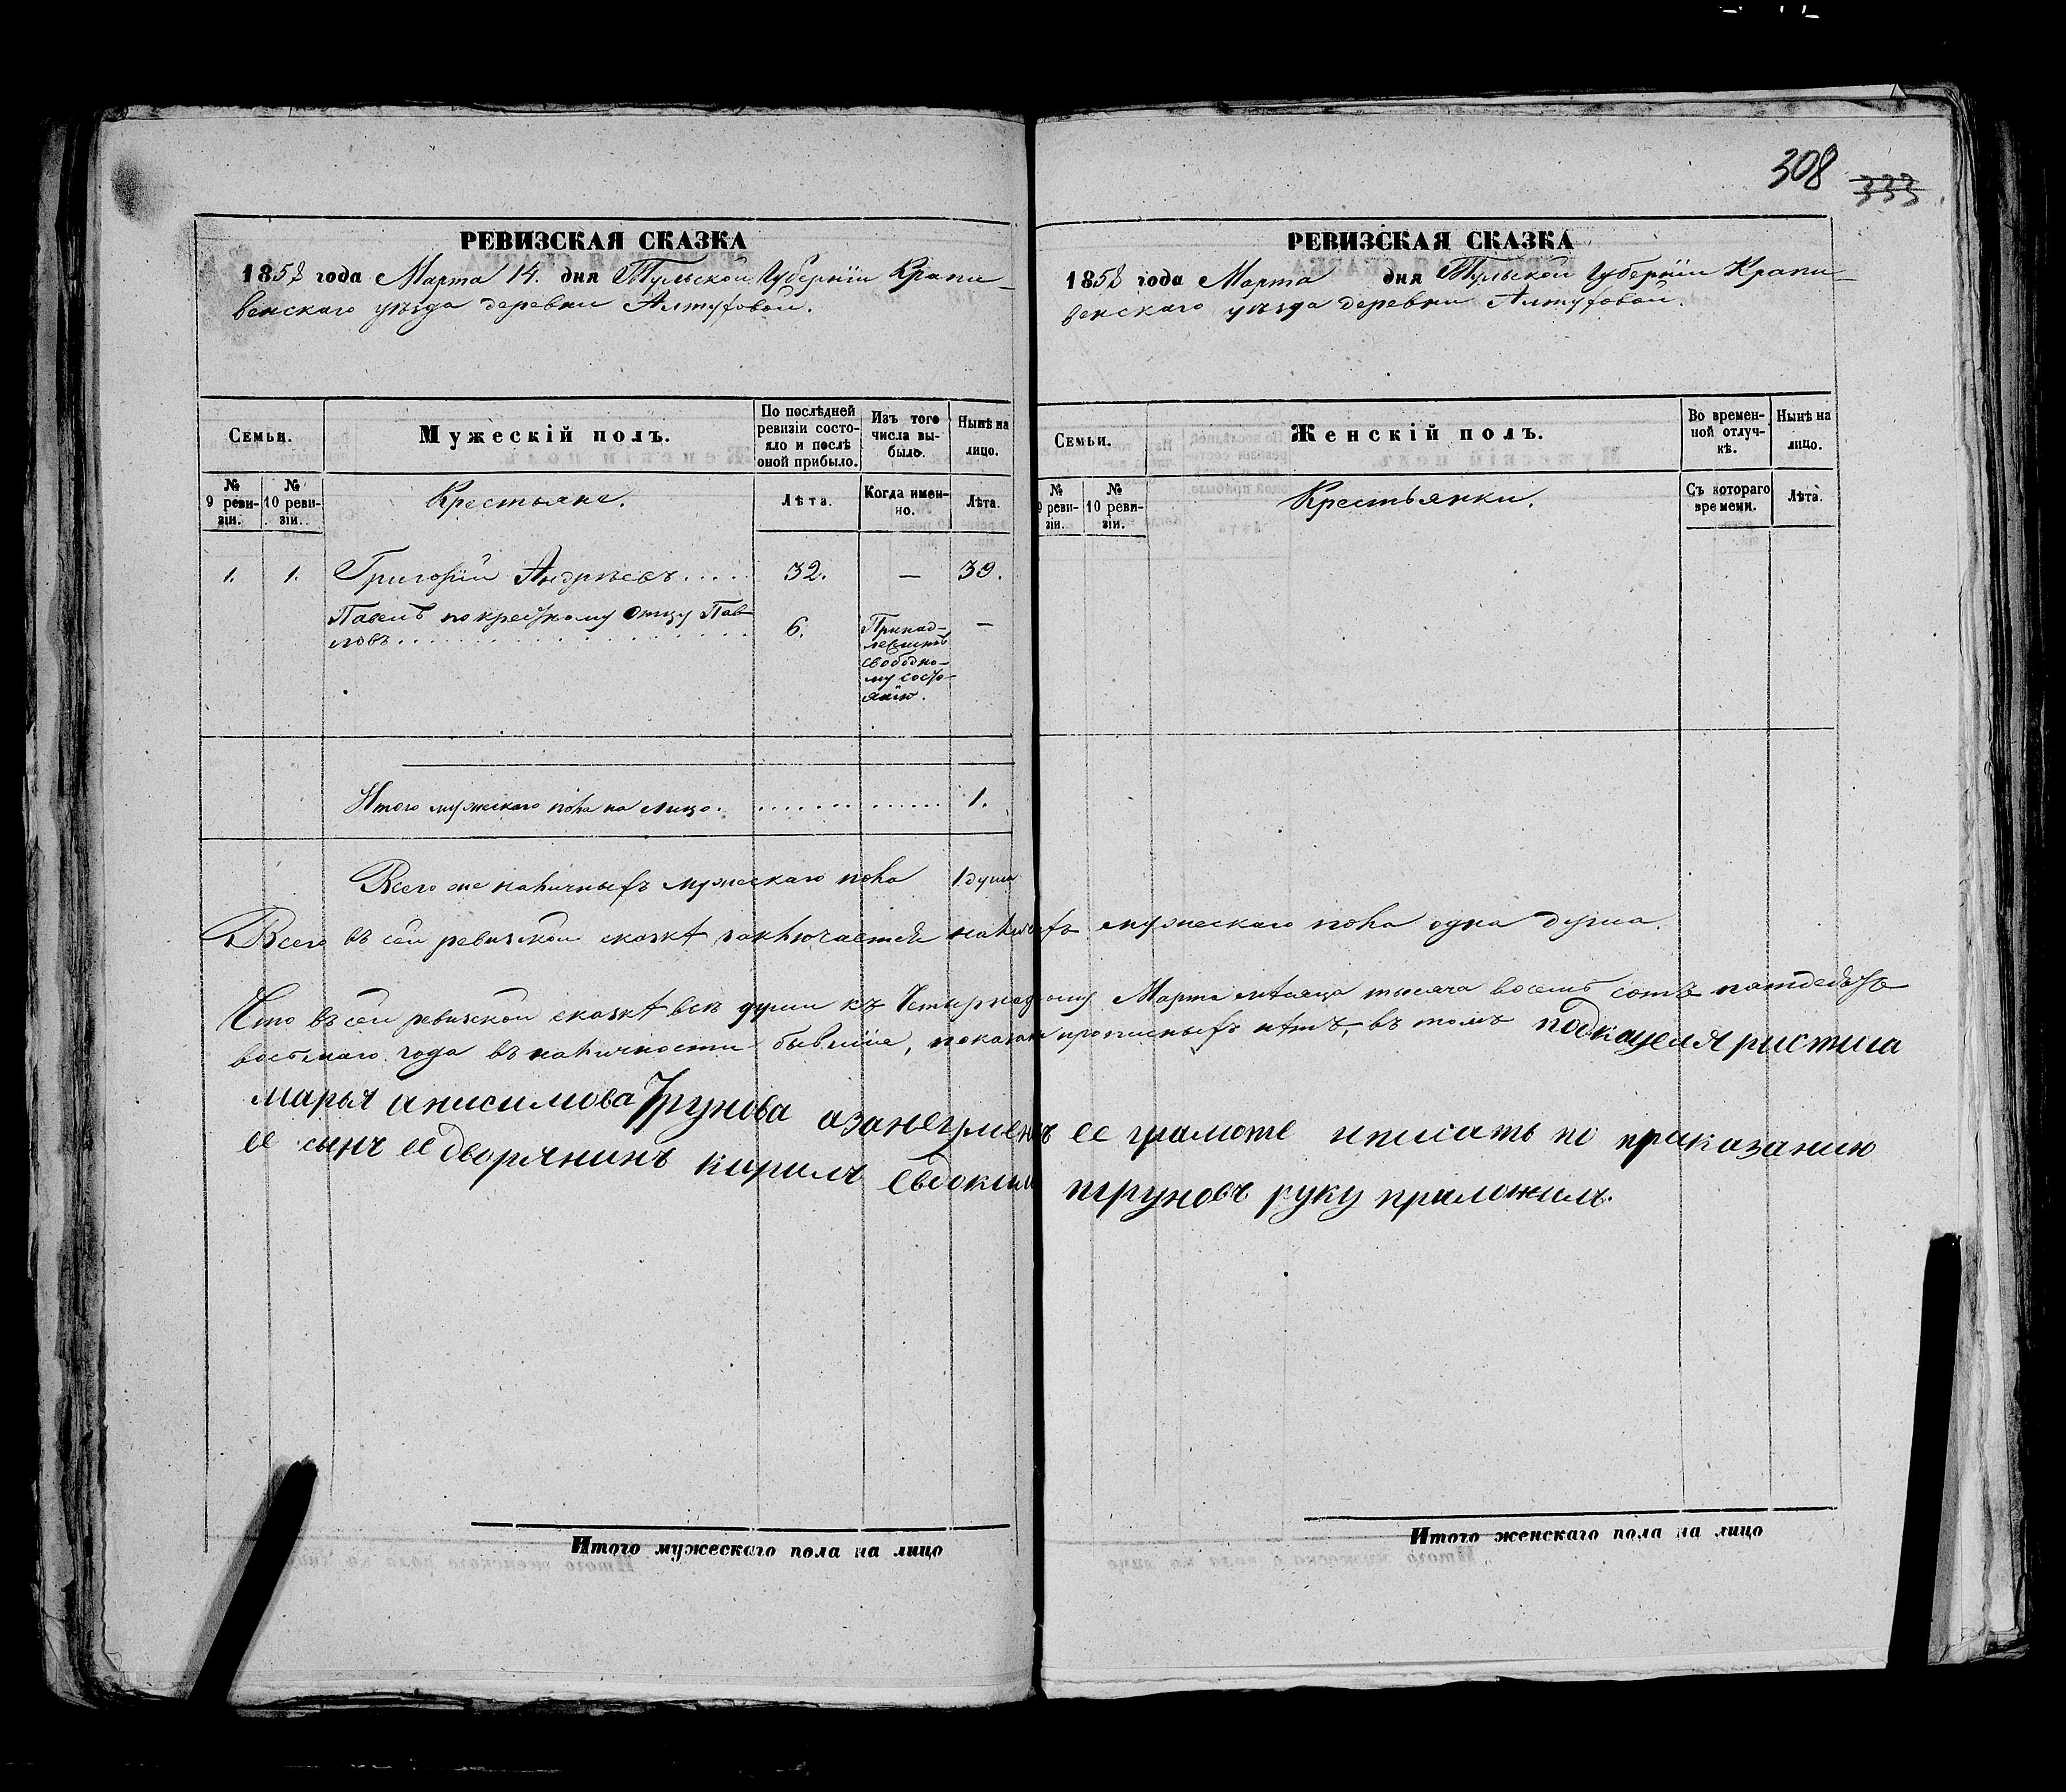 308 333
РЕВИЗСКАЯ СКАЗКА
1858 года Марта 14. дня Тульской Губерніи Крапи-
венскаго уѣзда деревни Алтуфовой.
Семьи.
Мужескій полъ.
По послѣдней ревизіи состояло и послѣ оной прибыло.
Изъ того числа выбыло.
Нынѣ на лицо.
№ 9 ревизіи.
№ 10 ревизіи.
Крестьяне.
Лѣта.
Когда именно.
Лѣта.
1. 1. Григорій Андрѣевъ..... 32. — 39.
Павелъ по крестному Отцу Пав-
ловъ.................. 6. Принад- —
лежитъ
свободно-
му состо-
янію.
Итого мужескаго пола на лицо. ............. 1.
Всего же наличныхъ мужескаго пола 1 душа
РЕВИЗСКАЯ СКАЗКА
1858 года Марта дня Тульской Губерніи Крапи-
венскаго уѣзда деревни Алтуфовой.
Семьи.
Женскій полъ.
Во временной отлучкѣ.
Нынѣ на лицо.
9 ревизіи.
№ 10 ревизіи.
Крестьянки.
Съ котораго времени.
Лѣта.
Всего въ сей ревизской сказкѣ заключается мужескаго пола одна душа.
Что въ сей ревизской сказкѣ всѣ души къ Марта мѣсяца тысяча восемь сотъ
восьмаго года въ наличности бывшіе, прописныхъ нѣтъ, въ томъ
марья анисимова Трунова азанеумен ъ ее грамоте иписать по приказанию
ее сынъ ее дворянинъ кирилъ Евдоким труновъ руку приложилъ.
Итого мужескаго пола на лицо
Итого женскаго пола на лицо